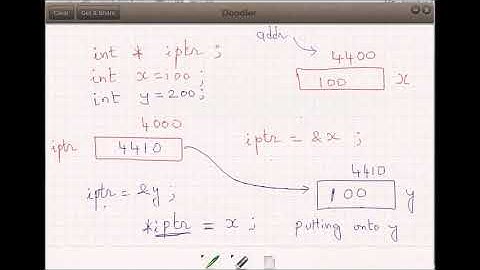 Clear
Get & Share
Doodler
int * iptr ;
int x=100 ;
int y=200 ;
addr
4400
100 x
4000
iptr 4410
iptr = &x ;
4410
100 y
iptr = &y ;
*iptr = x ;
putting onto y